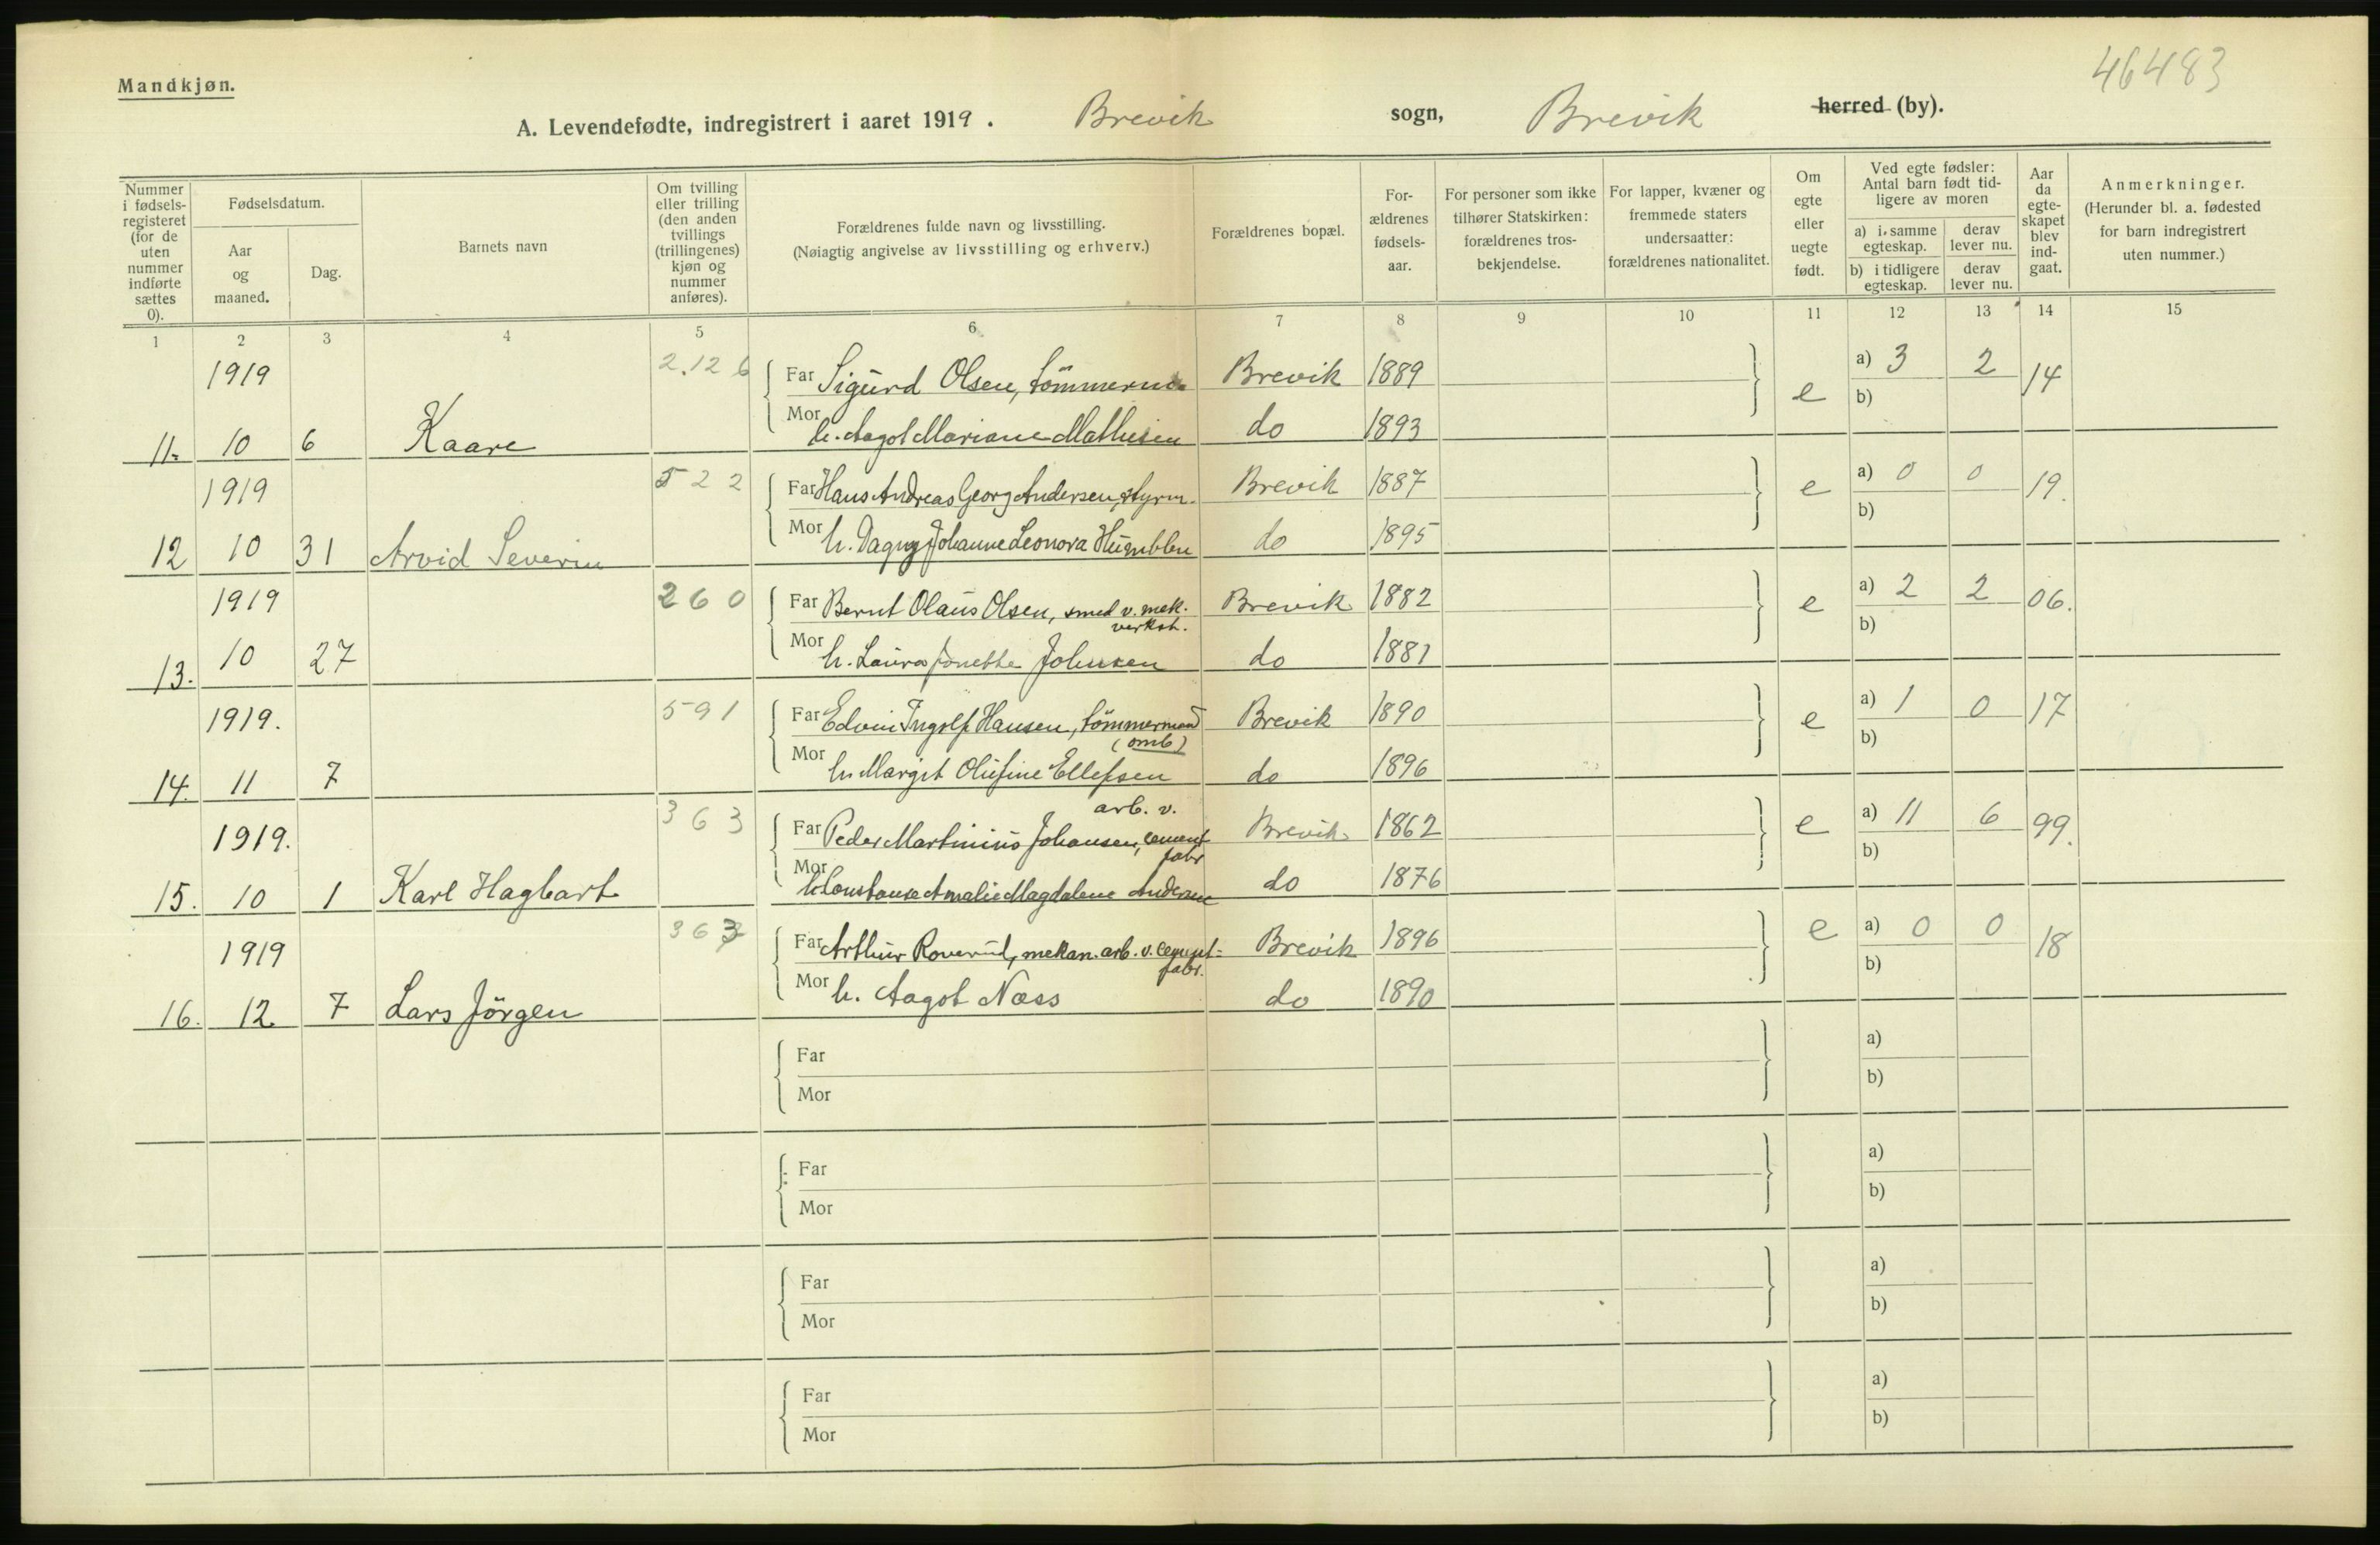 46483
Mandkjøn.
A. Levendefødte, indregistrert i aaret 1919. Brevik sogn, Brevik herred (by).
Nummer i fødsels-registeret (for de uten nummer indførte sættes 0).
Fødselsdatum.
Aar og maaned.
Dag.
Barnets navn
Om tvilling eller trilling (den anden tvillings (trillingenes) kjøn og nummer anføres).
Forældrenes fulde navn og livsstilling.
(Nøiagtig angivelse av livsstilling og erhverv.)
Forældrenes bopæl.
For-ældrenes fødsels-aar.
For personer som ikke tilhører Statskirken: forældrenes tros-bekjendelse.
For lapper, kvæner og fremmede staters undersaatter: forældrenes nationalitet.
Om egte eller uegte født.
Ved egte fødsler: Antal barn født tid-ligere av moren
a) i samme egteskap.
derav lever nu.
b) i tidligere egteskap.
derav lever nu.
Aar da egte-skapet blev ind-gaat.
Anmerkninger.
(Herunder bl. a. fødested for barn indregistrert uten nummer.)
1 2 3 4 5 6 7 8 9 10 11 12 13 14 15
1919 2.126 Far Sigurd Olsen, tömmerm. Brevik 1889 e a) 3 2 14
11. 10 6 Kaare Mor h. Aagot Mariane Mathisen do 1893 b)
1919 522 Far Hans Andreas Georg Andersen, styrm. Brevik 1887 e a) 0 0 19.
12 10 31 Arvid Severin Mor h. Dagny Johanne Leonora Humblen do 1895 b)
1919 260 Far Bernt Olaus Olsen, smed v. mek. verkst. Brevik 1882 e a) 2 2 06.
13. 10 27 Mor h. Laura Jonette Johnsen do 1881 b)
1919. 591 Far Edvin Ingolf Hansen, tömmermand (omb) Brevik 1890 e a) 1 0 17
14. 11 7 Mor h. Margit Olufine Ellefsen do 1896 b)
1919. 363 Far Peder Martinius Johansen, arb. v. cement fabr Brevik 1862 e a) 11 6 99.
15. 10 1 Karl Hagbart Mor h. Constanse Amalie Magdalene Andersen do 1876 b)
1919 363 Far Arthur Roverud, mekan. arb. v. cement-fabr. Brevik 1896 e a) 0 0 18
16. 12. 7 Lars Jörgen Mor h. Aagot Næss do 1890 b)
Far a)
Mor b)
Far a)
Mor b)
Far a)
Mor b)
Far a)
Mor b)